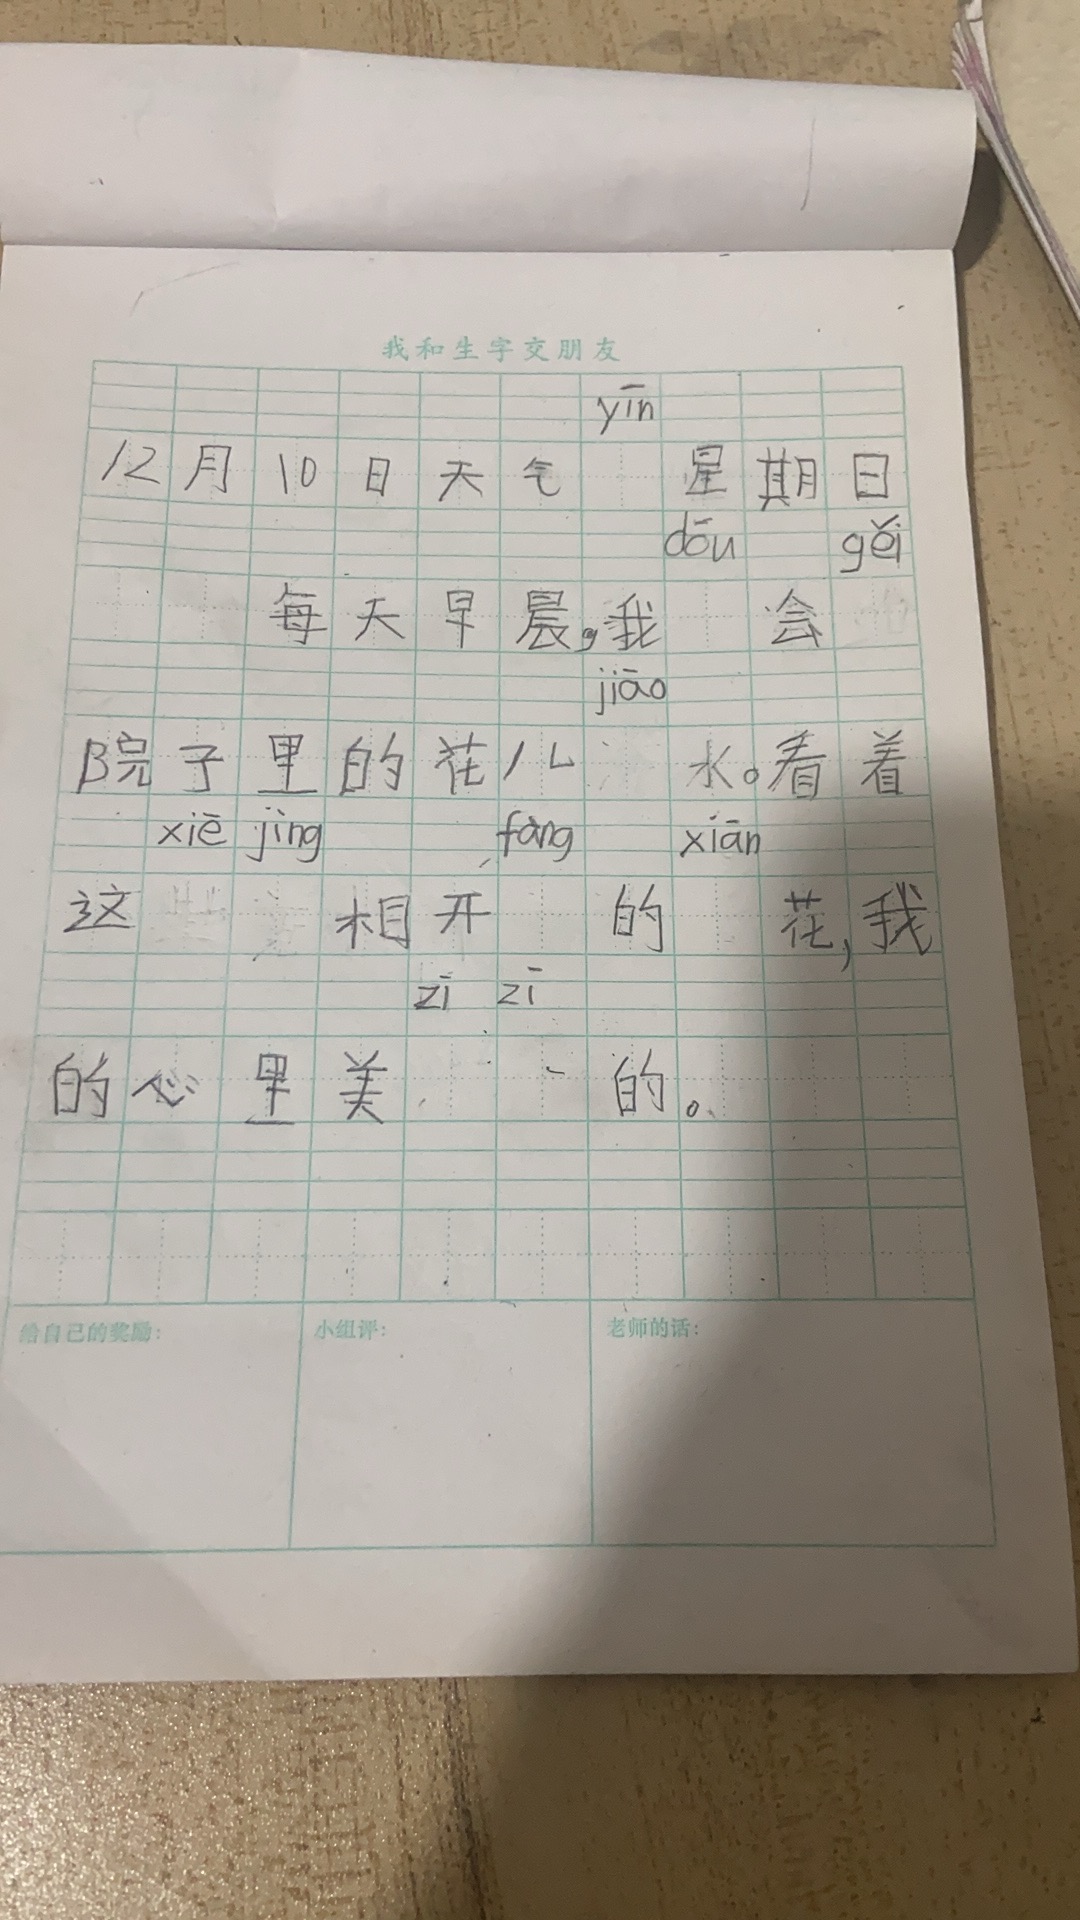 我和生字交朋友
yīn
12月10日天气 星期日
dōu gěi
每天早晨,我 会
jiāo
院子里的花儿 水。看着
xiē jìng fàng xiān
这 相开 的 花,我
zī zī
的心里美 的。
给自己的奖励:
小组评:
老师的话: